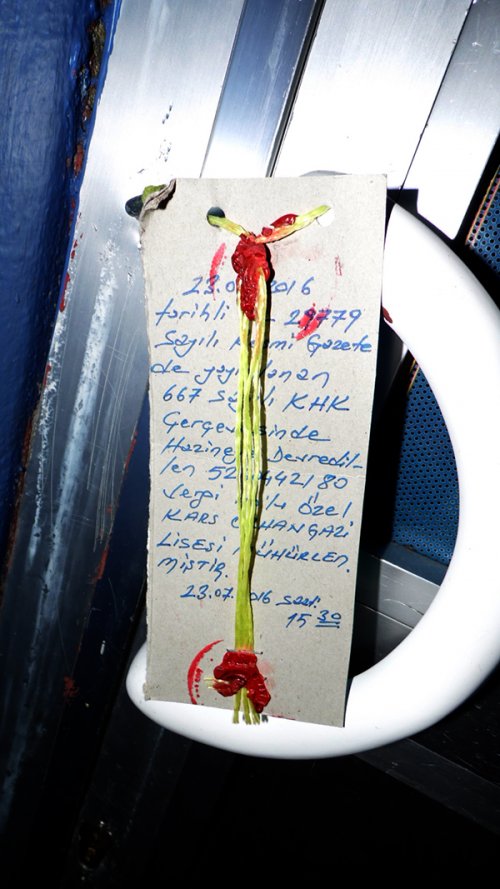 23.0 2016
tarihli 29779
Sayılı Resmi Gazete
de yayınlanan
667 Sayılı KHK
Çerçevesinde
Hazineye Devredil-
len 52 442180
Vergi Özel
KARS CİHANGAZİ
LİSESİ MÜHÜRLEN.
MİŞTİR.
23.07.2016 saat:
15 30